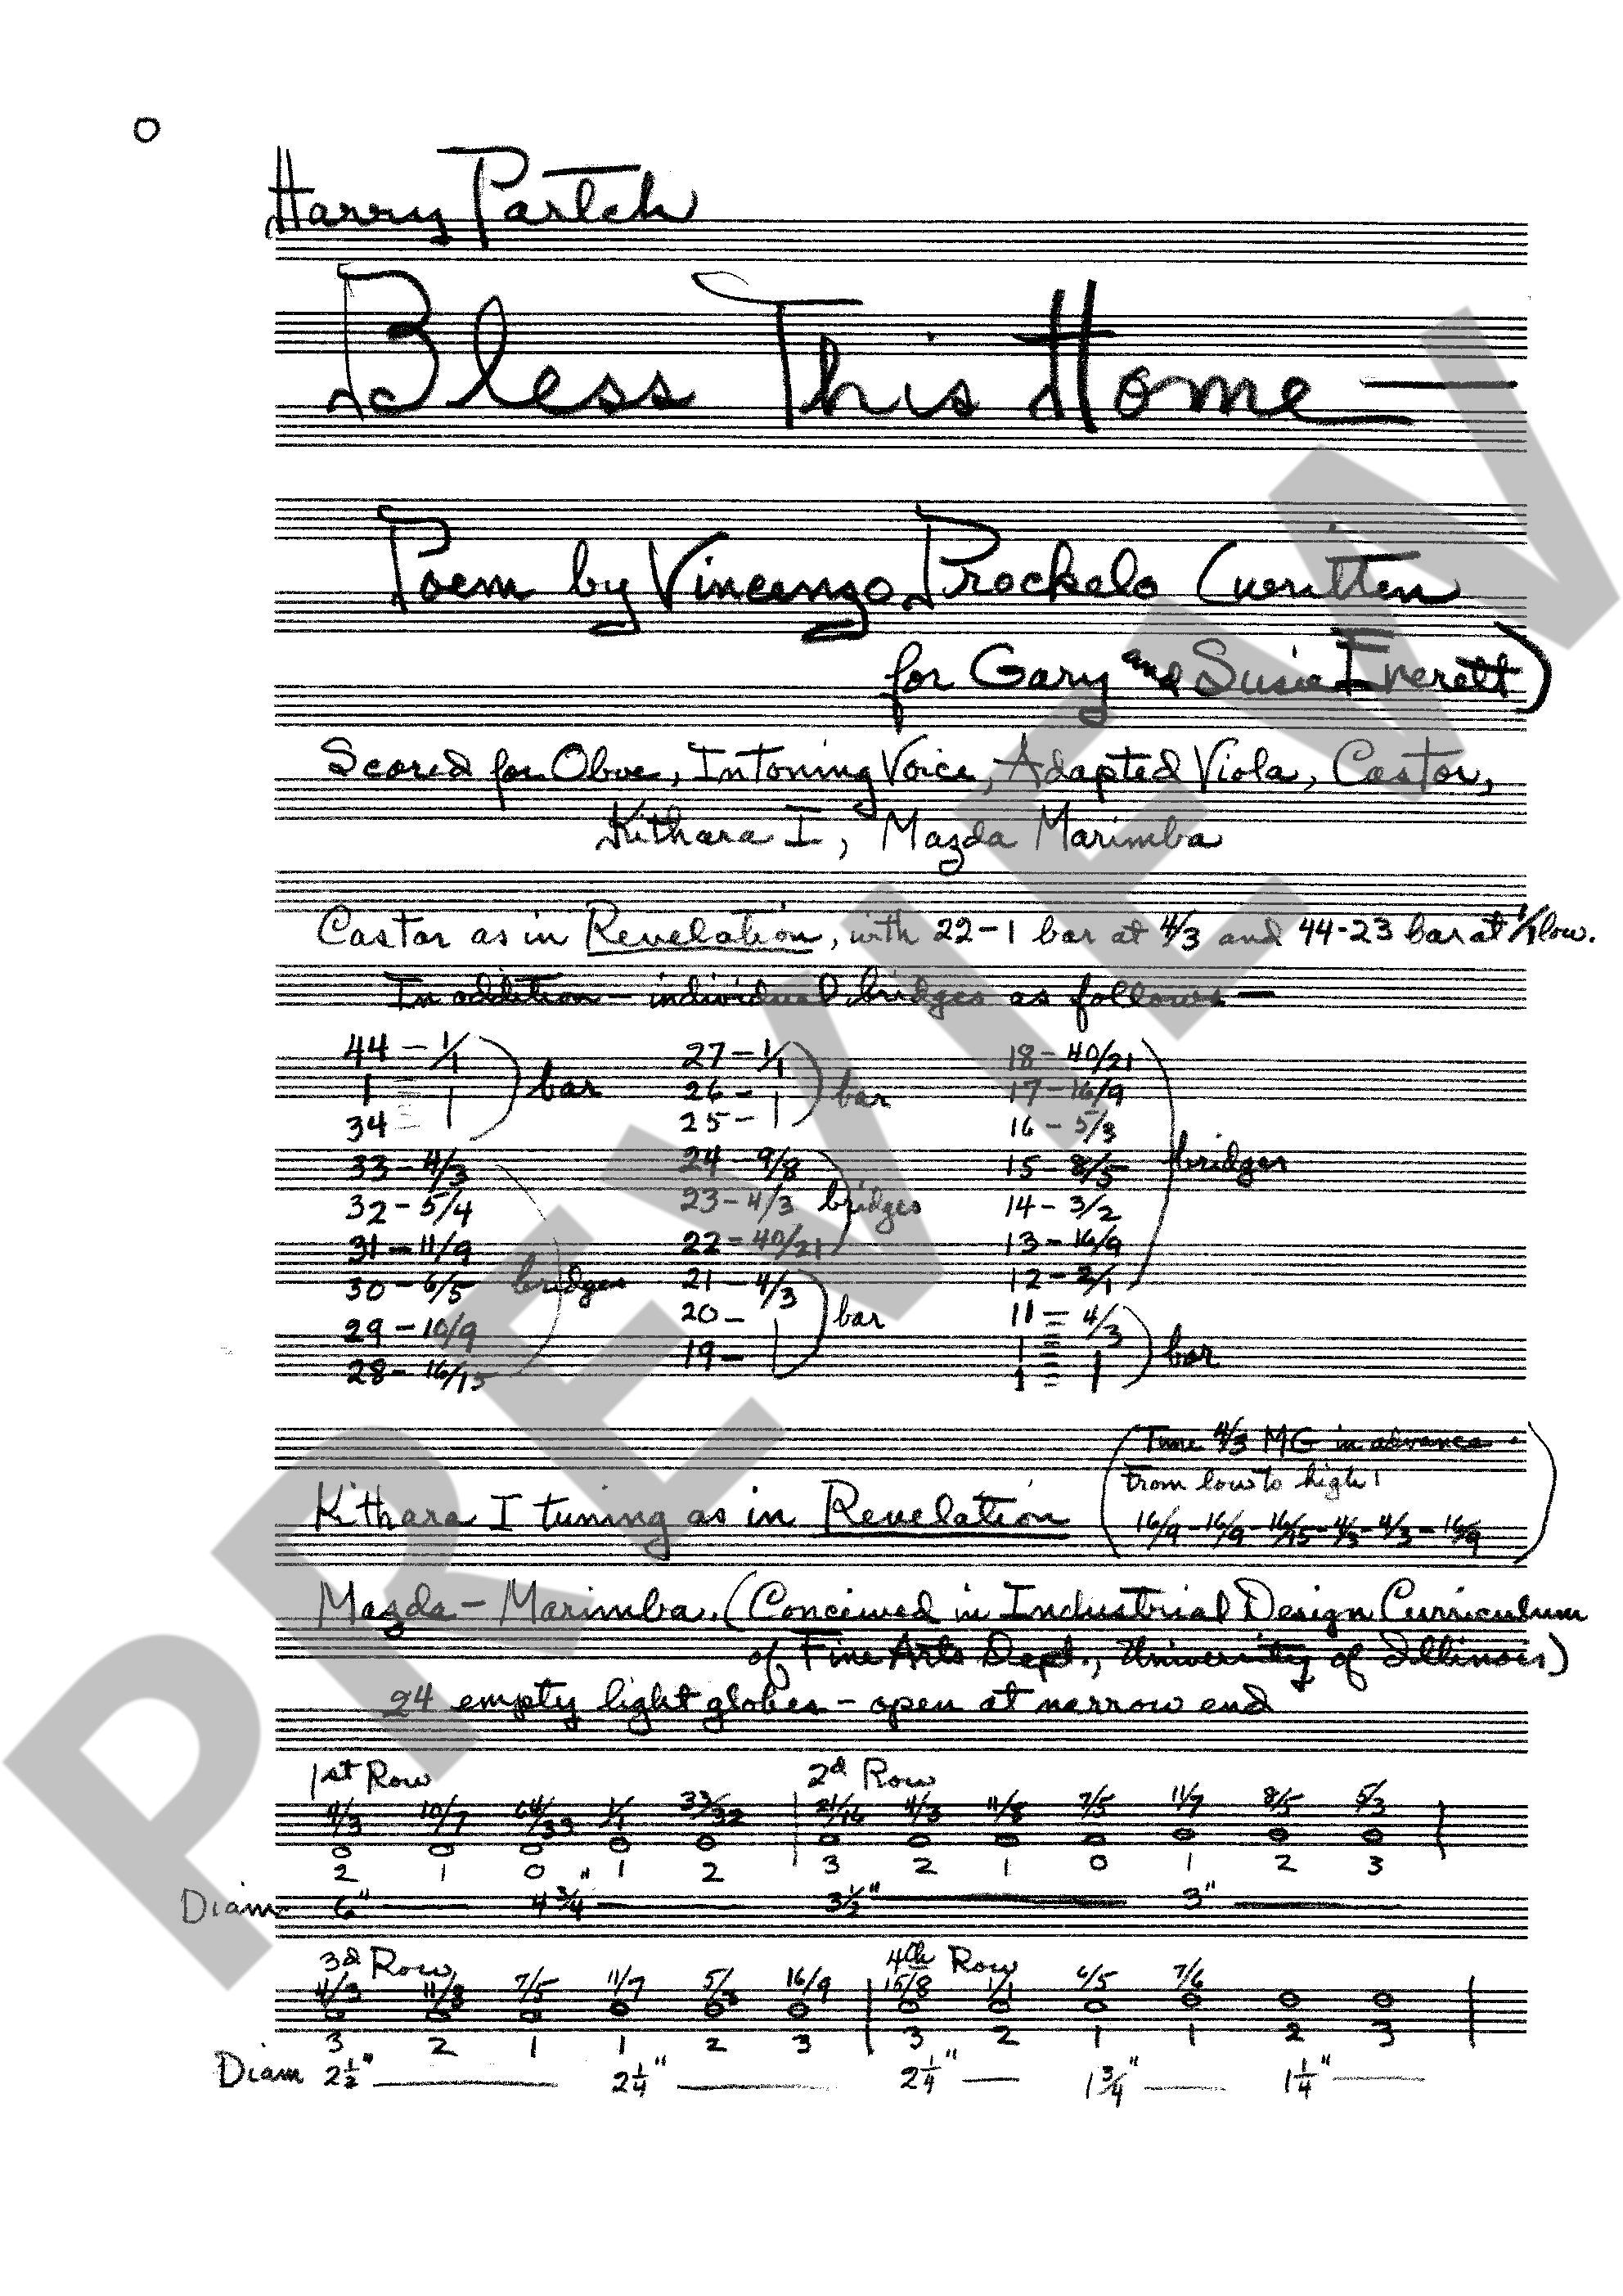 Harry Partch
Bless This Home —
Poem by Vincenzo Prockelo (written
for Gary and Susie Everett)
Scored for Oboe, Intoning Voice, Adapted Viola, Castor,
Kithara I, Mazda Marimba
Castor as in Revelation, with 22-1 bar at 4/3 and 44-23 bar at 1/1 low.
In addition — individual bridges as follows —
44 — 1/1 27 — 1/1 18 — 40/21
1 bar 26 — bar 17 — 16/9
34 25 — 16 — 5/3
33 — 4/3 24 — 9/8 15 — 8/5 bridges
32 — 5/4 23 — 4/3 bridges 14 — 3/2
31 — 11/9 22 — 40/21 13 — 16/9
30 — 6/5 bridges 21 — 4/3 12 — 2/1
29 — 10/9 20 — bar 11 = 4/3
28 — 16/15 19 — bar
(Tune 4/3 MG in advance.
From low to high:
Kithara I tuning as in Revelation 16/9 - 16/9 - 16/15 - 4/3 - 4/3 - 16/9)
Mazda — Marimba. (Conceived in Industrial Design Curriculum
of Fine Arts Dept., University of Illinois)
24 empty light globes — open at narrow end
1st Row 2d Row
4/3 10/7 64/33 1/1 33/32 21/16 4/3 11/8 7/5 11/7 8/5 5/3
2 1 0 1 2 3 2 1 0 1 2 3
Diam 6" 4 3/4" 3 1/2" 3"
3d Row 4th Row
4/3 11/8 7/5 11/7 5/3 16/9 15/8 1/1 6/5 7/6
3 2 1 1 2 3 3 2 1 1 2 3
Diam 2 1/2" 2 1/4" 2 1/4" 1 3/4" 1 1/4"
PREVIEW